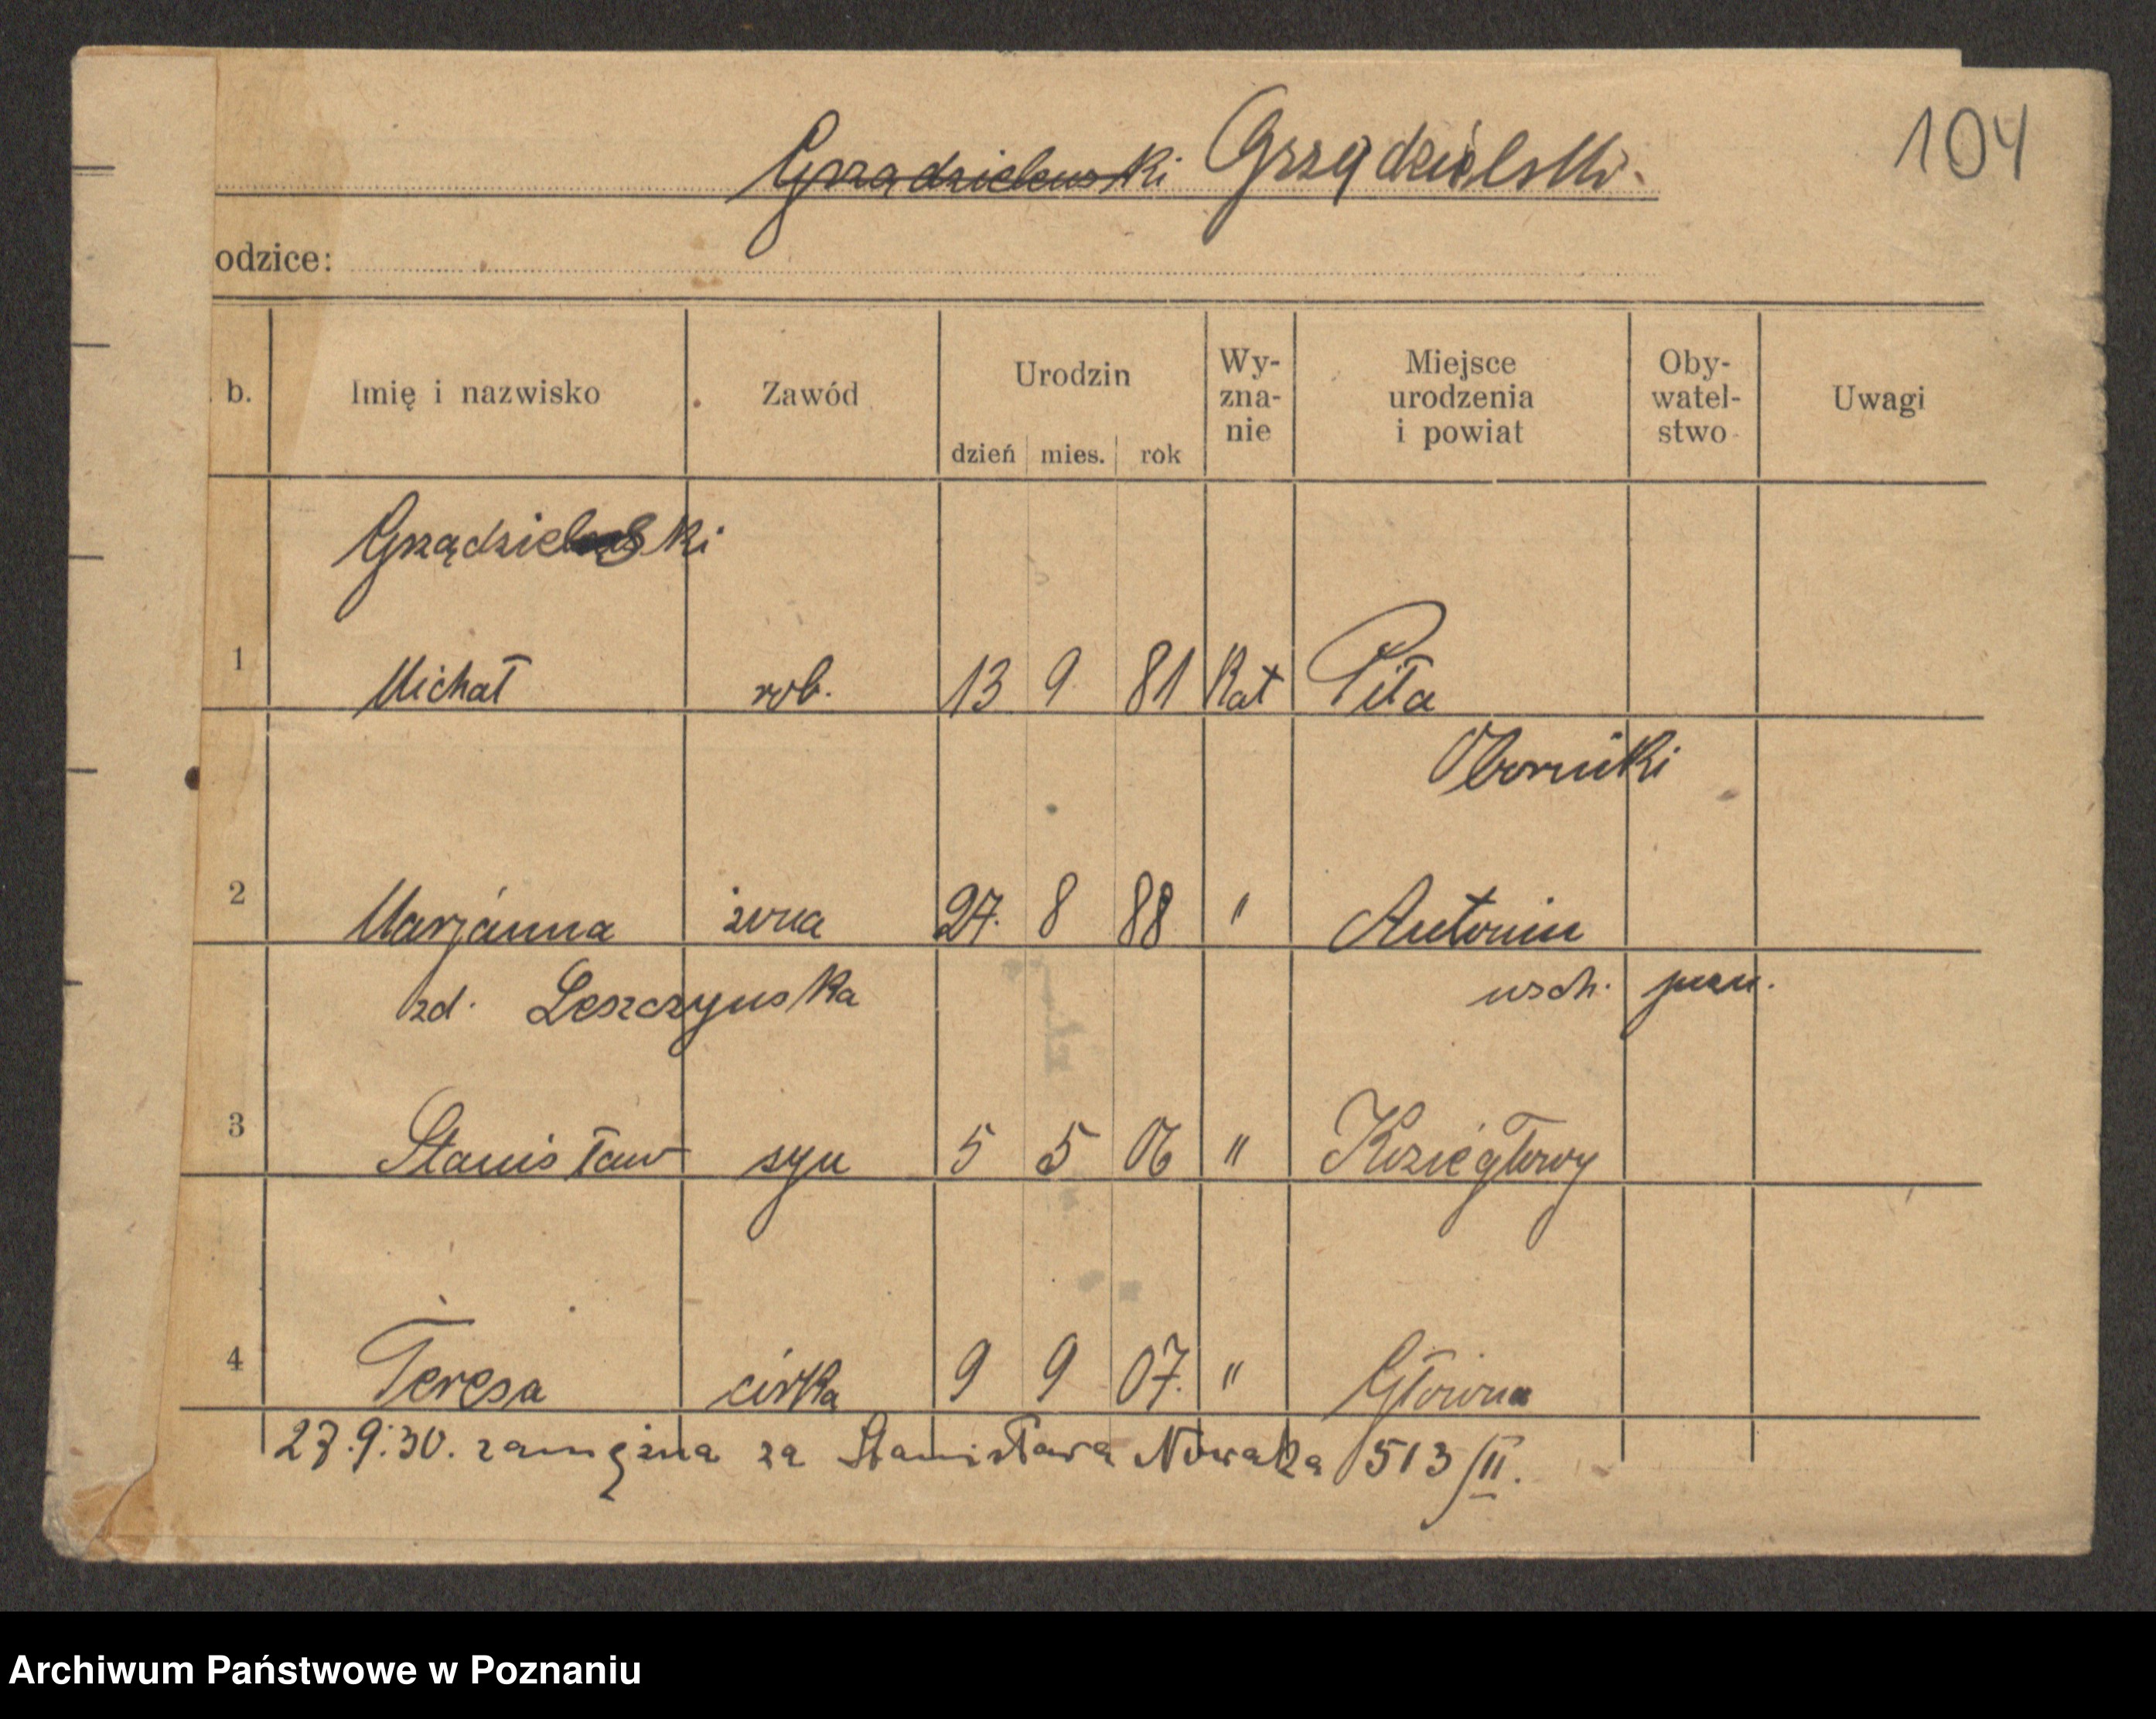 104
Grządzielewski Grządzielski.
odzice:
b. Imię i nazwisko Zawód Urodzin dzień mies. rok Wy-zna-nie Miejsce urodzenia i powiat Oby-watel-stwo Uwagi
Grządzielski
1 Michał rob. 13 9 81 Kat Piła
Oborniki
2 Marjanna żona 27. 8 88 " Antonin
zd. Leszczynska wsch.
3 Stanisław syn 5 5 06 " Koziegłowy
4 Teresa córka 9 9 07. " Główna
27.9.30. zamężna za Stanisława Nowaka 1513/II.
Archiwum Państwowe w Poznaniu